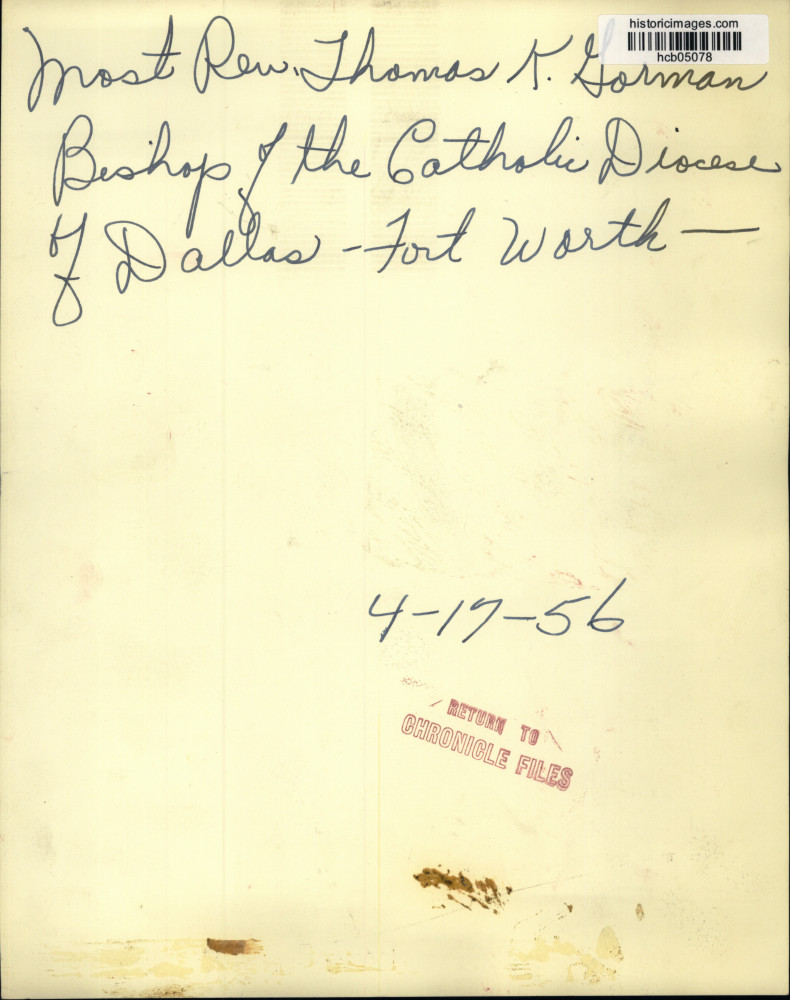 historicimages.com
hcb05078
Most Rev. Thomas K. Gorman
Bishop of the Catholic Diocese
of Dallas - Fort Worth —
4-17-56
RETURN TO
CHRONICLE FILES